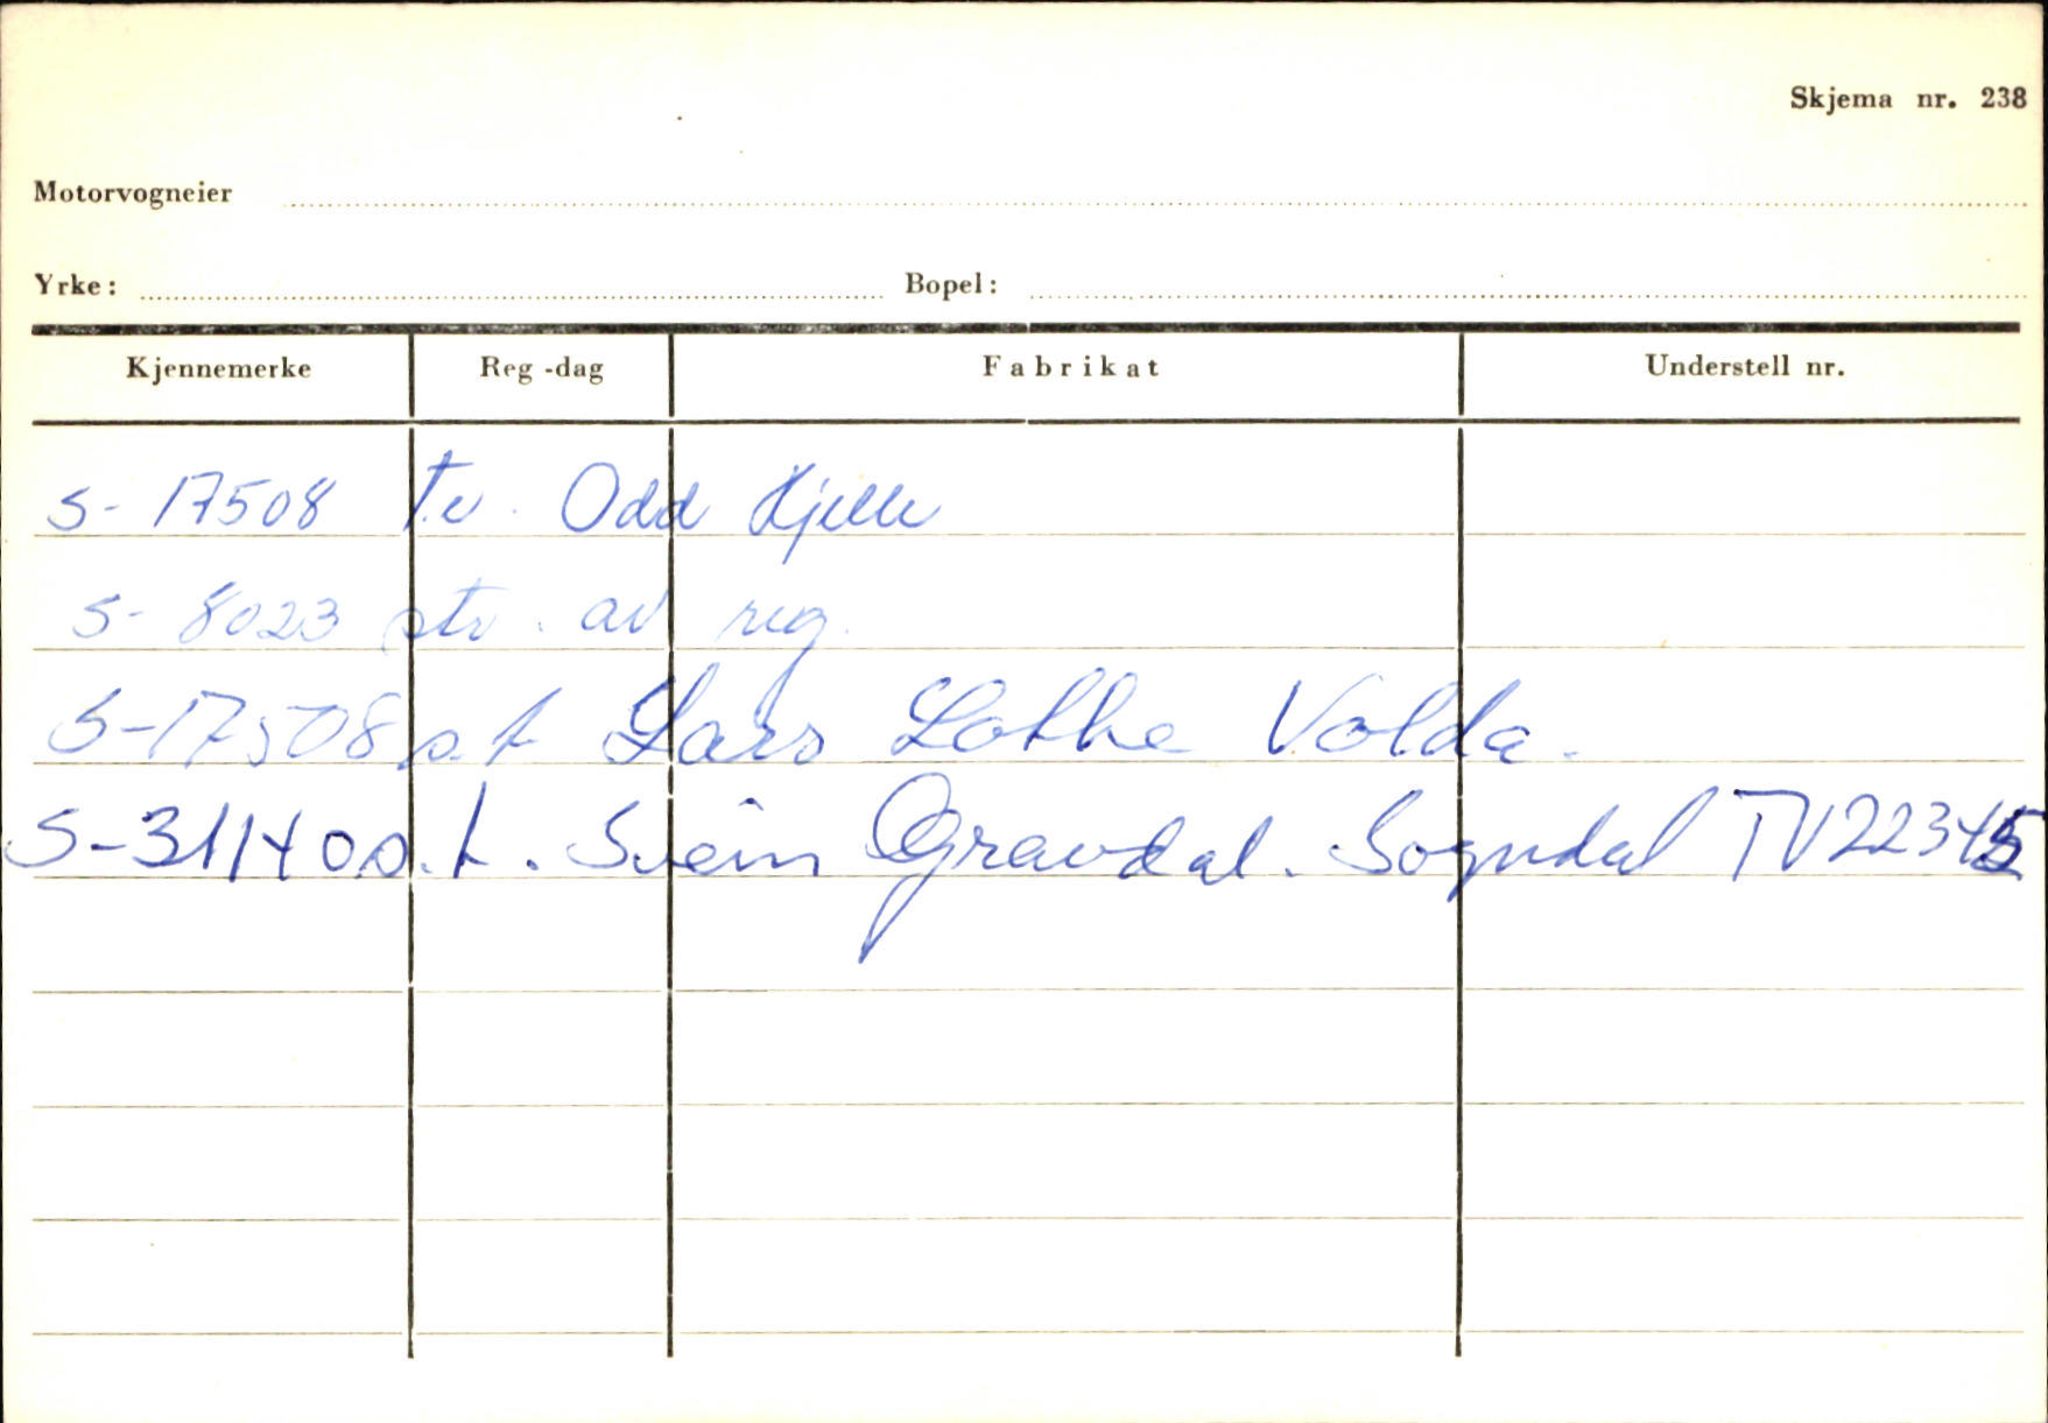 Skjema nr. 238
Motorvogneier
Yrke: Bopel:
Kjennemerke Reg-dag Fabrikat Understell nr.
S-17508 Odd Kjelle
S-8023 str. av reg.
S-17508 s.t Lars Lothe Volda.
S-31140 s.t. Svein Gravdal. Sogndal TV22345